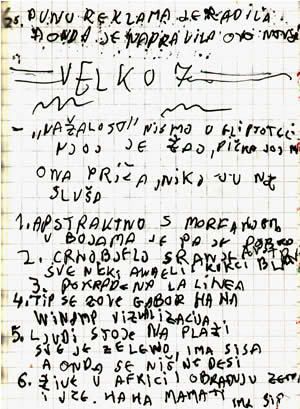 PUNU REKLAMA JE RADILA.
A ONDA JE NAPRAVILA OVO
VELKO 7.
- "NAŽALOST" NISMO U GLIPTOTECI
NJOJ JE ŽAO, PIČKA JOJ
ONA PRIČA, NIKO JU NE
SLUŠA
1. APSTRAKTNO S
U BOJAMA JE PA JE
2. CRNOBJELO SRANJE
SVE NEKI
3. POKRADENA LA LINEA
4. TIP SE ZOVE GABOR HA HA
WINAMP VIZUALIZACIJA.
5. LJUDI STOJE NA PLAŽI
SVE JE ZELENO, IMA SISA
A ONDA SE NIŠ NE DESI
6. ŽIVE U AFRICI I OBRAĐUJU
I HA HA MAMATI
IMA SIP